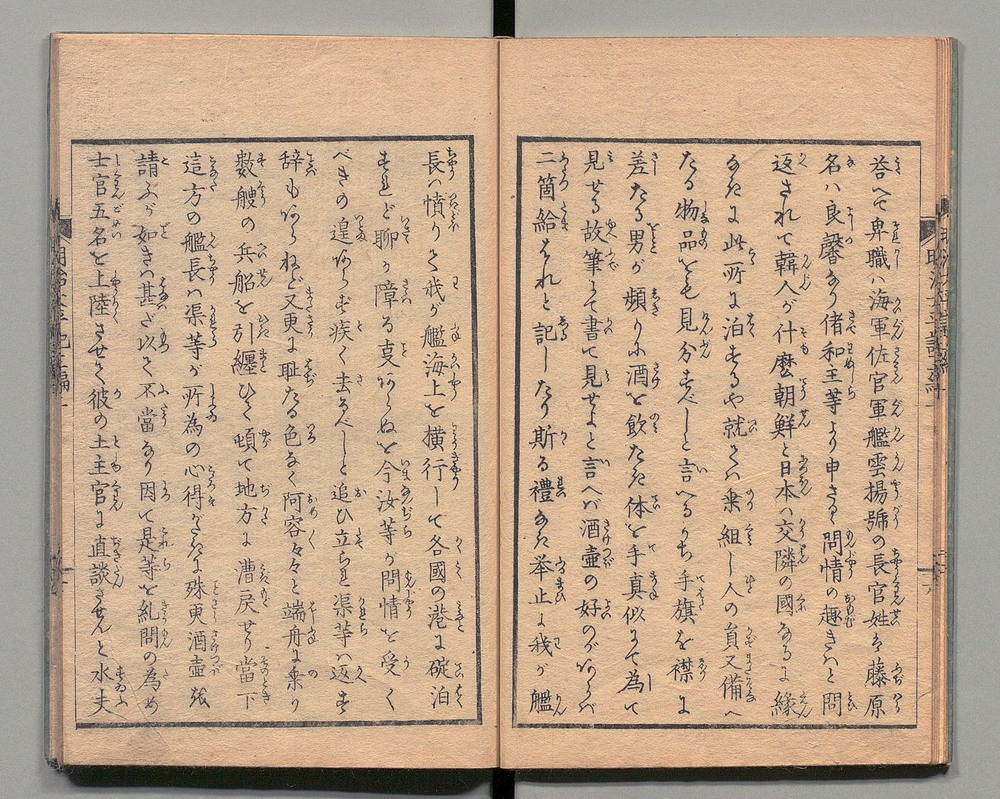 答へて卑職ハ海軍佐官軍艦雲揚號の長官姓ハ藤原
名ハ良馨なり偖和主等より申さるゝ問情の趣きハと問
返されて韓人が什麼朝鮮と日本ハ交隣の國なるに縁
なたに此所に泊するや就てハ乗組し人の員又備へ
たる物品をも見分すべしと言へるうち手旗を襟に
差たる男が頻りに酒を飲たき体を手真似にて為て
見せる故筆にて書て見せよと言へバ酒壷の好のがあらバ
二箇給はれと記したり斯る禮なき挙止に我が艦
長ハ憤りて我が艦海上を横行して各國の港に碇泊
すれど聊か障る事あらぬを今汝等が問情を受く
べきの遑あらず疾く去るべしと追ひ立られ渠等ハ返す
辞もあらねど又更に耻たる色なく阿容々々と端舟に乗り
数艘の兵船を引纏ひて頓て地方に漕戻せり當下
這方の艦長ハ渠等が所為の心得がたきに殊更酒壷抔
請ふが如きハ甚だ以て不當なり因て是等を糺問の為め
士官五名を上陸させて彼の土主官に直談させんと水夫